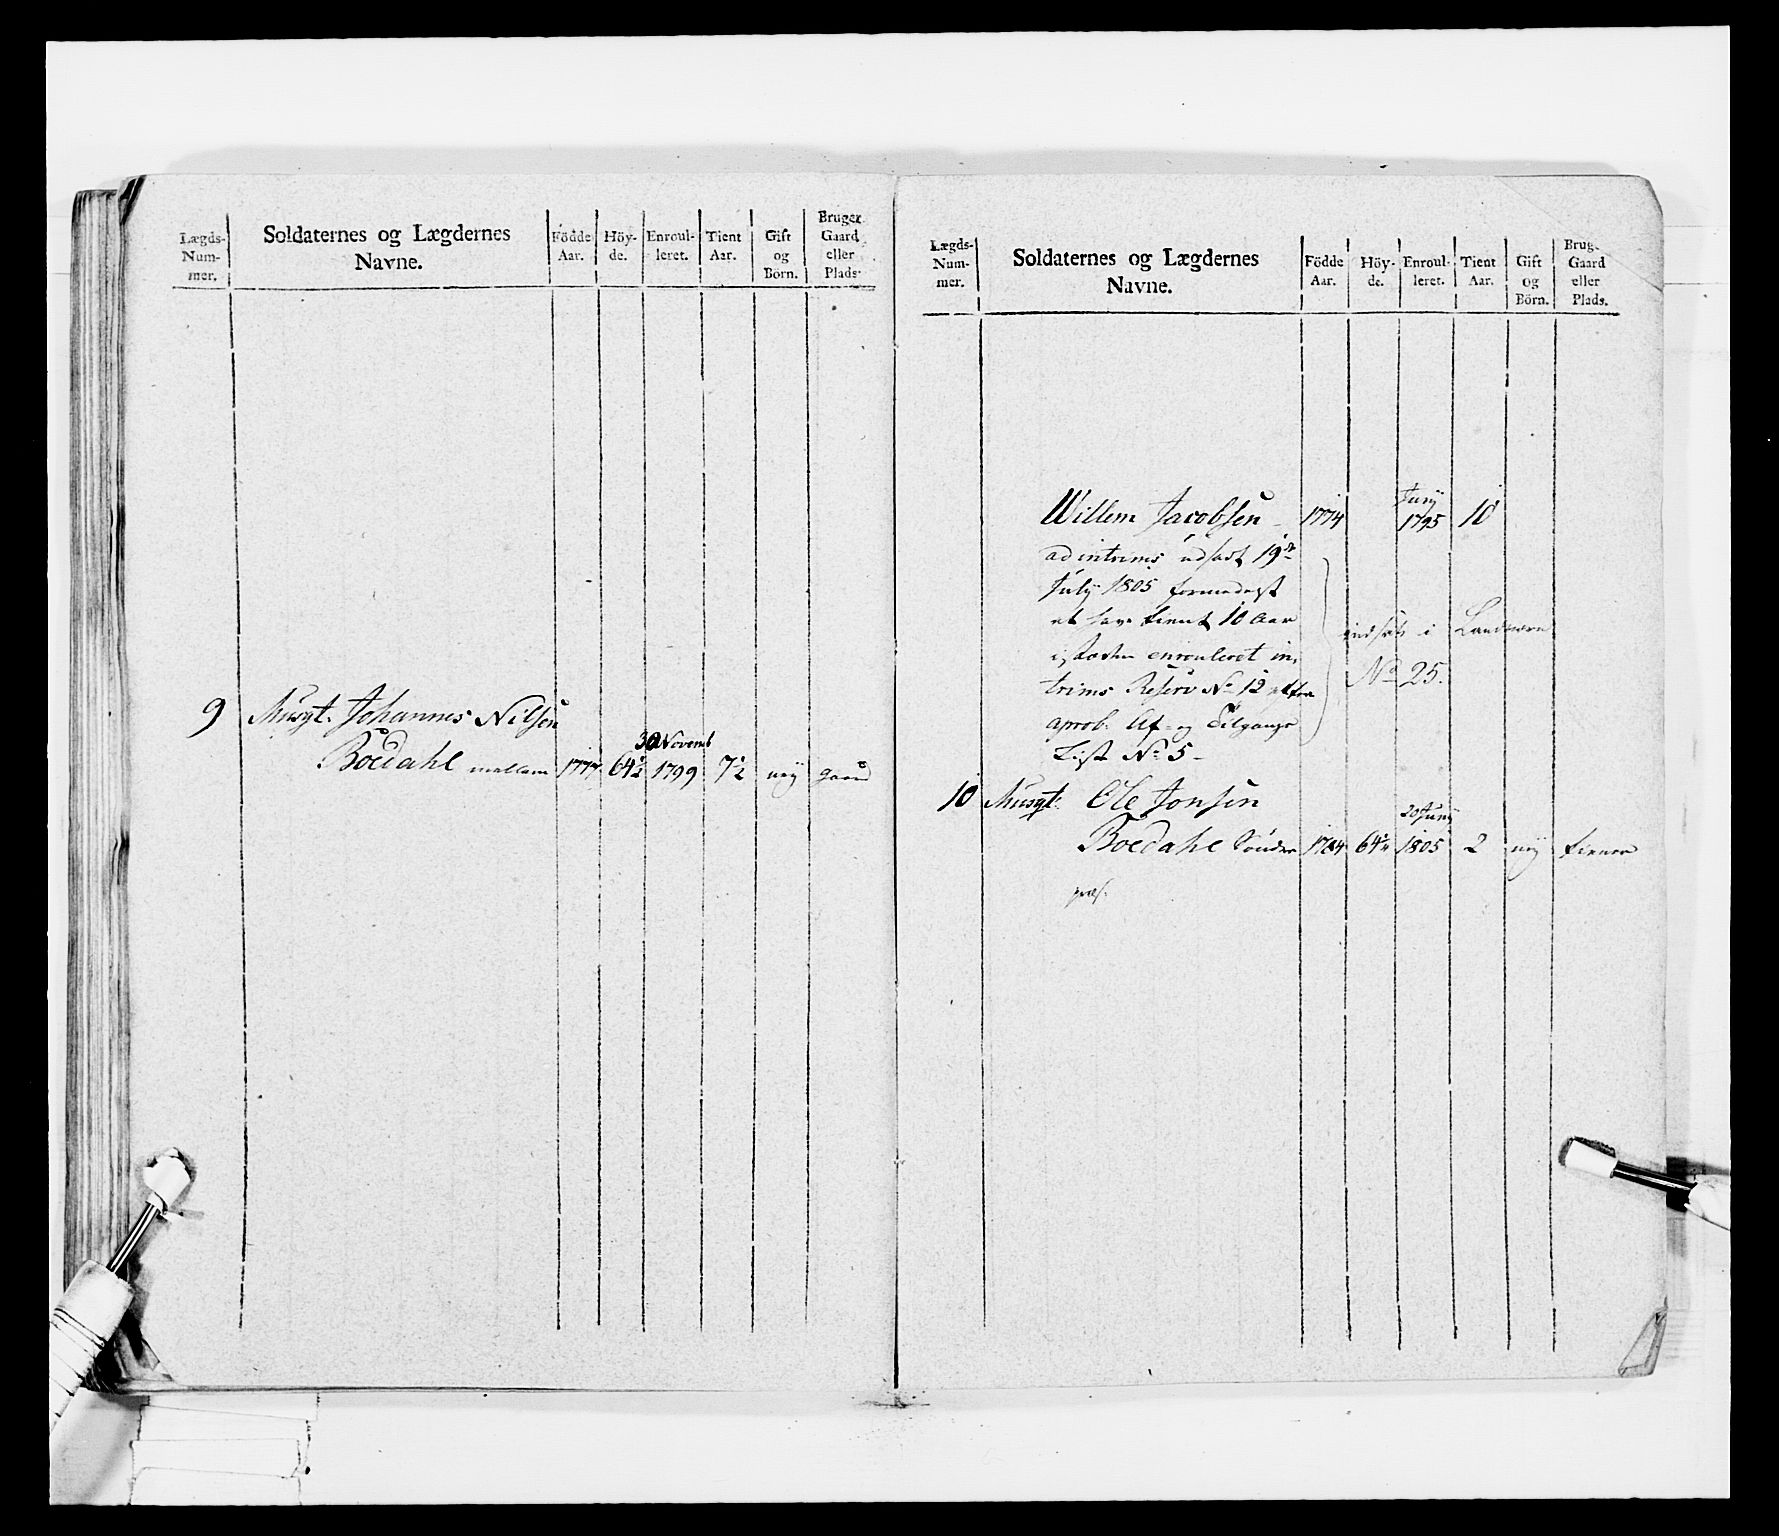 Lægds-
Num-
mer.
Soldaternes og Lægdernes
Navne.
Födde
Aar.
Höy-
de.
Enroul-
leret.
Tient
Aar.
Gift
og
Börn.
Bruger
Gaard
eller
Plads.
9 Musqt. Johannes Nilsen
30 Novemb
Boedahl mellem 1777 64½ 1799 7½ ney gaard
Lægds-
Num-
mer.
Soldaternes og Lægdernes
Navne.
Födde
Aar.
Höy-
de.
Enroul-
leret.
Tient
Aar.
Gift
og
Börn.
Brug.
Gaard
eller
Plads.
Juny
Willem Jacobsen 1774 1795 10
ad intrims udsadt 19de
July 1805 formedelst
at have tient 10 Aar
istæden enrouleret in,
trims Reserv No 12 efter
aprob. Af- og Tilgangs
List No 5
indsat i Landværn
No 25.
10 Musqt. Ole Jonsen
20 Juny
Boedahl Sönder 1784 64 1805 2 ney tiener